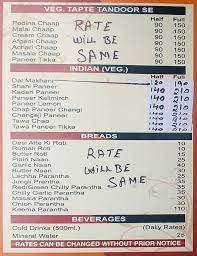 VEG. TAPTE TANDOOR SE
Half Full
Podina Chaap 90 150
Malai Chaap 90 150
Cream Chaap 90 150
Afgani Chaap 90 150
Achari Chaap 90 150
Tawa Chaap 90 150
Paneer Tikka 90 150
RATE
WILL BE
SAME
INDIAN (VEG.)
Half Full
Dal Makhani 120 190
Shahi Paneer 140 210
Kadan Paneer 140 210
Paneer Kalimirch 140 210
Paneer Lemon 140 210
Chap Paneer Changi 140 210
Changezi Paneer 140 210
Tawa Chap 140 210
Paneer Tikka 140 210
BREADS
Desi Atte Ki Roti 10
Rumali Roti 10
Butter Roti
Plain Naan
Garlic Naan
Butter Naan
Lachha Parantha
Jungli Parantha
Red/Green Chilly Parantha
Chilly Garlic Parantha
Masala Parantha
Onion Parantha
Keema Parantha
RATE
WILL BE
SAME
BEVERAGES
Cold Drinks (500ml.) (Daily Rates)
Mineral Water 25
RATES CAN BE CHANGED WITHOUT PRIOR NOTICE